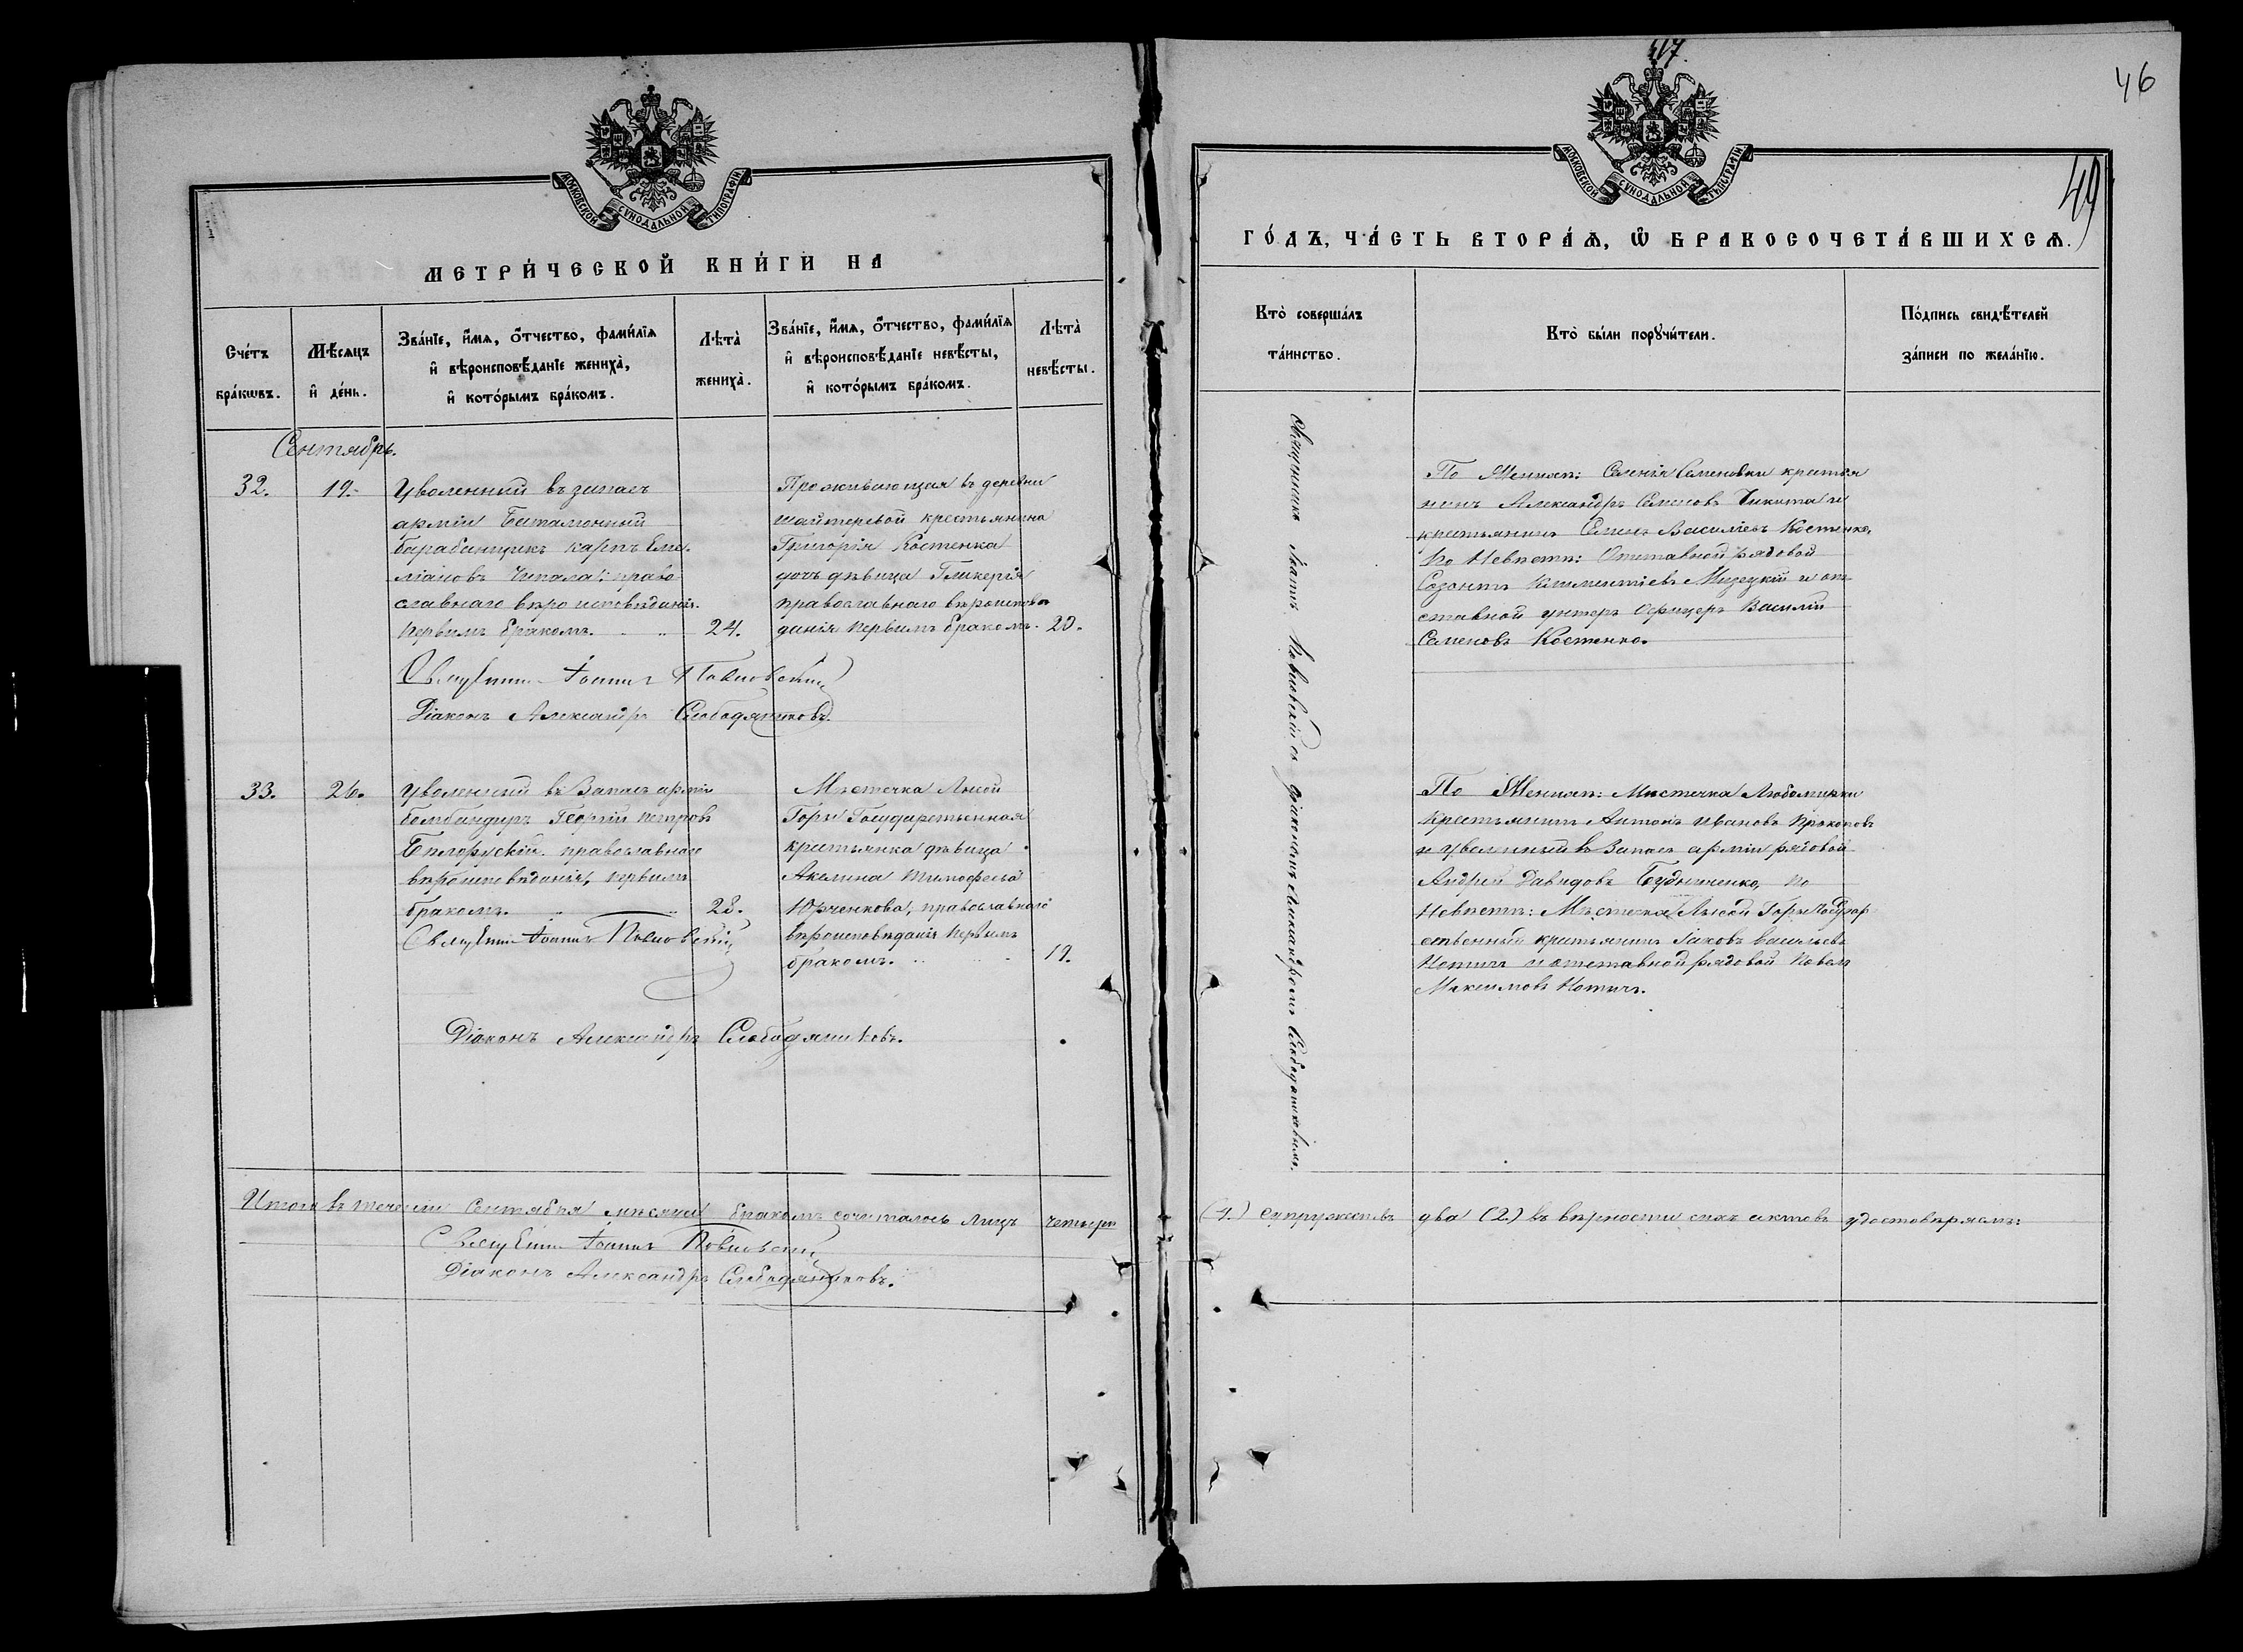 47.
46
49
МОСКОВСКОЙ СѴНОДАЛЬНОЙ ТИПОГРАФІИ
МЕТРИ́ЧЕСКОЙ КНИ́ГИ НА
Сче́тъ бра́кѡвъ.
Мѣ́сяцъ и҆ де́нь.
Зва́нїе, и҆́мѧ, ѻ҆́тчество, фами́лїѧ
и҆ вѣроисповѣ́данїе жениха̀,
и҆ кото́рымъ бра́комъ.
Лѣта̀ жениха̀.
Зва́нїе, и҆́мѧ, ѻ҆́тчество, фами́лїѧ
и҆ вѣроисповѣ́данїе невѣ́сты,
и҆ кото́рымъ бра́комъ.
Лѣта̀ невѣ́сты.
Сентябрь.
32.
19.
Уволенный въ запасъ
арміи Баталіонный
барабанщикъ Карпъ Еме-
ліановъ право-
славнаго вѣроисповѣданія.
первымъ бракомъ.
24.
Проживающая въ деревни
крестьянина
Григорія Костенка
дочь дѣвица Гликерія
православнаго вѣроисповѣ
данія первымъ бракомъ.
20.
Священникъ Іоаннъ
Діаконъ Александръ Слободяниковъ.
33.
26.
Уволенный въ Запасъ арміи
бомбандиръ Георгій Петровъ
православнаго
вѣроисповѣданія, первымъ
бракомъ.
28.
Мѣстечка Лысой
Горы Государственная
крестьянка дѣвица
Акелина Тимофеева
Юрченкова, православнаго
вѣроисповѣданія первымъ
бракомъ.
19.
Священникъ Іоаннъ
Діаконъ Александръ Слободяниковъ.
Итого въ теченіи Сентября мѣсяца бракомъ сочеталось лицъ четыре
Священникъ Іоаннъ
Діаконъ Александръ Слободяниковъ.
МОСКОВСКОЙ СѴНОДАЛЬНОЙ ТИПОГРАФІИ
ГО́ДЪ, ЧА́СТЬ ВТОРА́Ѧ, Ѡ҆ БРАКОСОЧЕТА́ВШИХСѦ.
Кто̀ соверша́лъ
та́инство.
Кто̀ бы́ли порꙋчи́тели.
По́дпись свидѣ́телей
за́писи по жела́нїю.
Священникъ Іоаннъ съ діакономъ Александромъ Слободяниковымъ.
По Женихѣ: Селенія Семеновки крестья
нинъ Александръ Семеновъ и
крестьянинъ Василіевъ Костенко,
По Невѣстѣ: Отставной рядовой
Созонтъ Климентіевъ и от
ставной унтеръ Офицеръ Василій
Семеновъ Костенко.
По Женихѣ: Мѣстечка Любомирки
Крестьянинъ Антонъ Ивановъ
и уволенный въ Запасъ арміи рядовой
Андрей Давидовъ Будниченко, По
Невѣстѣ: Мѣстечка Лысой Горы Государ
ственный крестьянинъ Іаковъ Васильевъ
и отставной рядовой Павелъ
Максимовъ
(4.) супружествъ два (2.) въ вѣрности сихъ актовъ удостовѣряемъ: